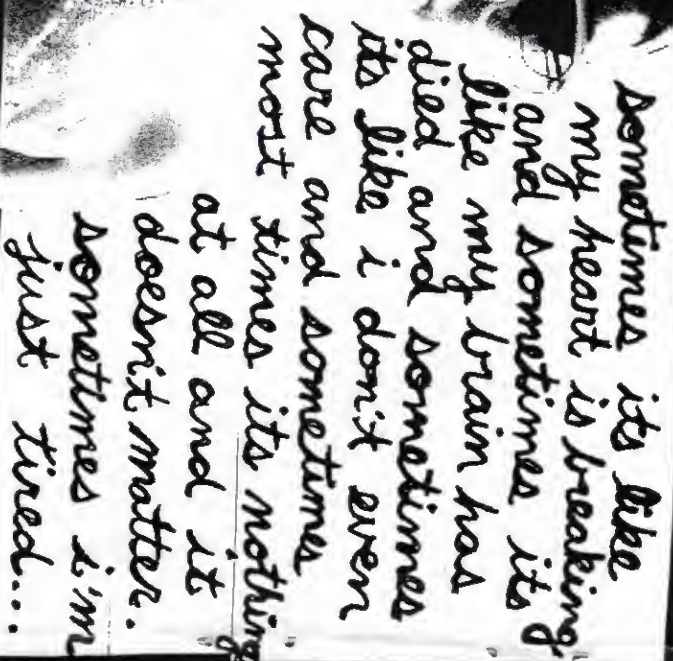 sometimes its like
my heart is breaking
and sometimes its
like my brain has
died and sometimes
its like i don't even
care and sometimes
most times its nothing
at all and it
doesn't matter.
sometimes i'm
just tired...